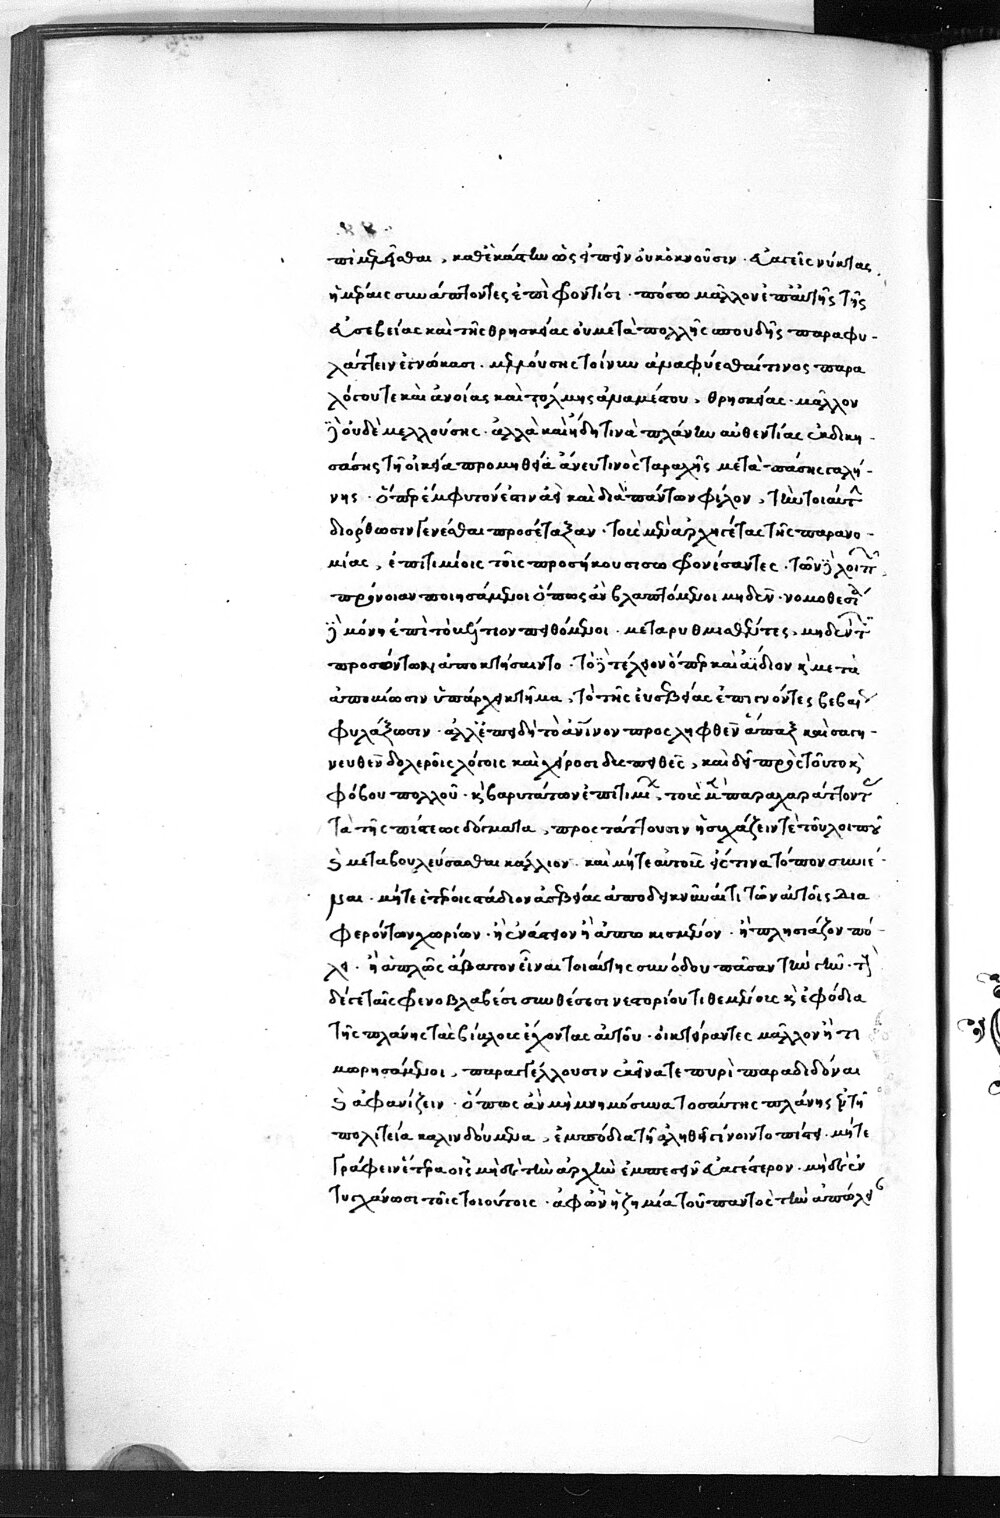 πιμελεῖσθαι, καθ' ἑκάστην ὡς εἰπεῖν οὐκ ὀκνοῦσιν. εἰ δὲ εἰς νύκτας
ἡμέραις συνάπτοντες ἐπὶ φροντίσι. πόσῳ μᾶλλον ἐπ' αὐτῆς τῆς
εὐσεβείας καὶ τῆς θρησκείας οὐ μετὰ πολλῆς σπουδῆς παραφυ-
λάττειν ἐγνώκασι. μελλούσης τοίνυν ἀναφύεσθαί τινος παρα
λόγου τε καὶ ἀνοίας καὶ τόλμης ἀναμέσου, θρησκείας. μᾶλλον
δὲ οὐδὲ μελλούσης. ἀλλὰ καὶ ἤδη τινὰ πλάνην αὐθεντίας ἐκδικη-
σάσης τῇ οἰκείᾳ προμηθείᾳ ἄνευ τινὸς ταραχῆς μετὰ πάσης γαλή-
νης. ὅπερ ἔμφυτόν ἐστιν ἀεὶ καὶ διὰ πάντων φίλον, τὴν τοιαύτην
διόρθωσιν γενέσθαι προσέταξαν. τοὺς μὲν ἀρχηγέτας τῆς παρανο-
μίας, ἐπιτιμίοις τοῖς προσήκουσι σωφρονίσαντες. τῶν δὲ λοιπῶν
πρόνοιαν ποιησάμενοι ὅπως ἂν βλαπτόμενοι μηδὲν. νομοθεσίᾳ
δὲ μόνῃ ἐπὶ τὸ κρεῖττον πειθόμενοι. μεταρυθμισθέντες, μηδὲν τῶν
προσόντων ἀποκτήσαιντο. τὸ δὲ τέλειον ὅπερ καὶ ἀΐδιον καὶ μετὰ
ἀποβίωσιν ὑπάρχει κτῆμα, τὸ τῆς εὐσεβείας ἐπιγνόντες βεβαίως
φυλάξωσιν. ἀλλ' ἐπειδὴ τὸ ἀνθρώπινον προσληφθὲν ἅπαξ καὶ σαγη-
νευθὲν δολεροῖς λόγοις καὶ χείροσι δυσπειθὲς, καὶ δεῖ πρὸς τοῦτο καὶ
φόβου πολλοῦ. καὶ βαρυτάτων ἐπιτιμίων, τοῖς μὲν παραχαράττοντας
τὰ τῆς πίστεως δόγματα, προστάττουσιν ἡσυχάζειν τὲ τοῦ λοιποῦ
καὶ μεταβουλεύσασθαι κάλλιον. καὶ μήτε αὐτοὺς εἴς τινα τόπον συνιέ-
ναι. μήτε ἑτέροις στάδιον ἀσεβείας ἀποδεικνῦναί τι τῶν αὐτοῖς δια
φερόντων χωρίων. ἢ ἐν ἄστει ὂν ἢ ἀπῳκισμένον. ἢ πλησιάζον πό-
λει. ἢ ἁπλῶς ἄβατον εἶναι τοιαύτης συνόδου πᾶσαν τὴν γῆν. τοὺς
δέ γε ταῖς φρενοβλαβέσι συνθέσεσι νεστορίου τιθεμένους καὶ ἐφόδια
τῆς πλάνης τὰς βίβλους ἔχοντας αὐτοῦ. οἰκτείραντες μᾶλλον ἢ τι
μωρησάμενοι, παραγγέλλουσιν ἐκεῖνά τε πυρὶ παραδιδόναι
καὶ ἀφανίζειν. ὅπως ἂν μὴ μνημόσυνα τοσαύτης πλάνης ἐν τῇ
πολιτείᾳ καλινδούμενα, ἐμπόδια τῇ ἀληθεῖ γίνοιντο πίστει. μήτε
γράφειν ἕτερα οἷς μηδὲ τὴν ἀρχὴν ἐμπεσεῖν εὐαγέστερον. μηδὲ ἐν
τυγχάνωσι τοῖς τοιούτοις. ἀφ' ὧν ἡ ζημία τοῦ παντὸς τὴν ἀπώλειαν